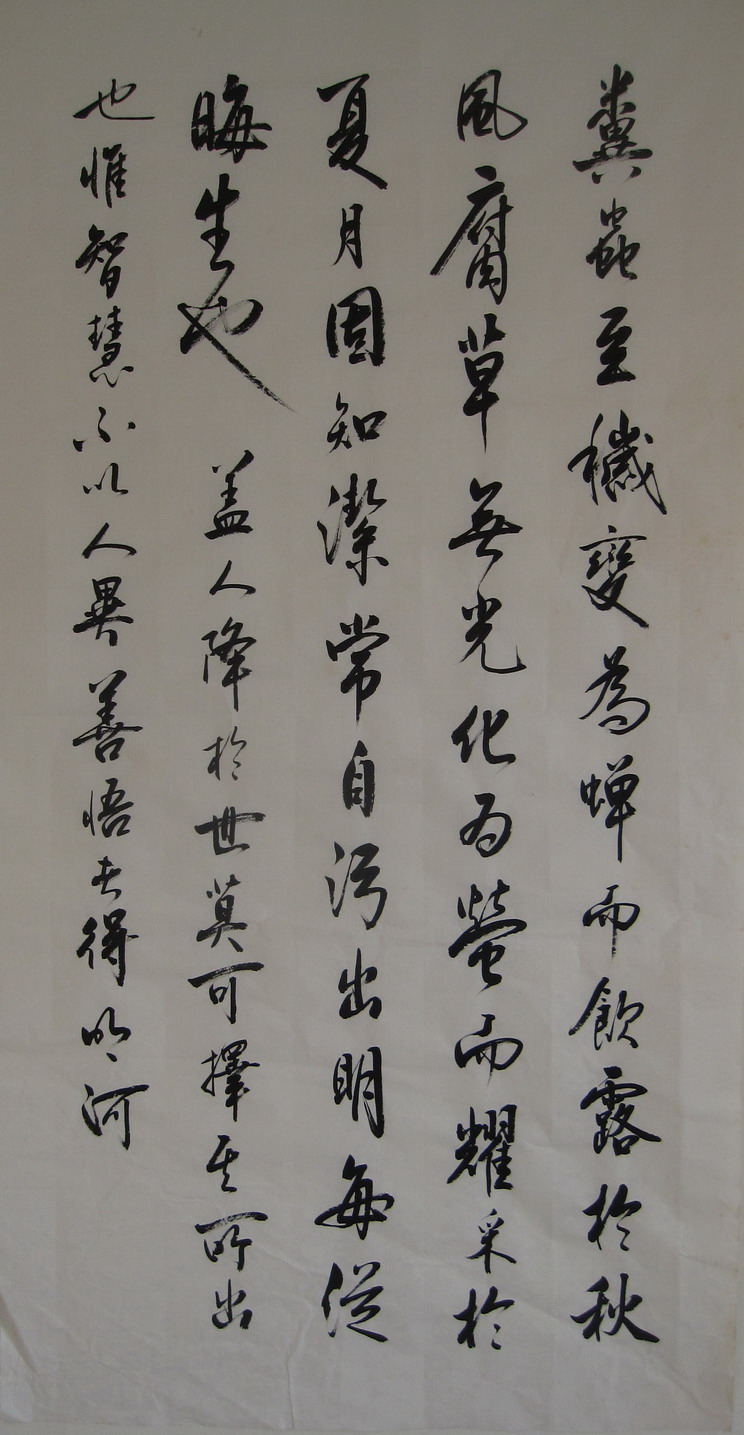 糞蟲至穢變為蝉而飲露於秋
風腐草無光化为螢而耀采於
夏月固知潔常自污出明每從
晦生也 盖人降於世莫可擇其所出
也惟智慧不以人異善悟者得明河